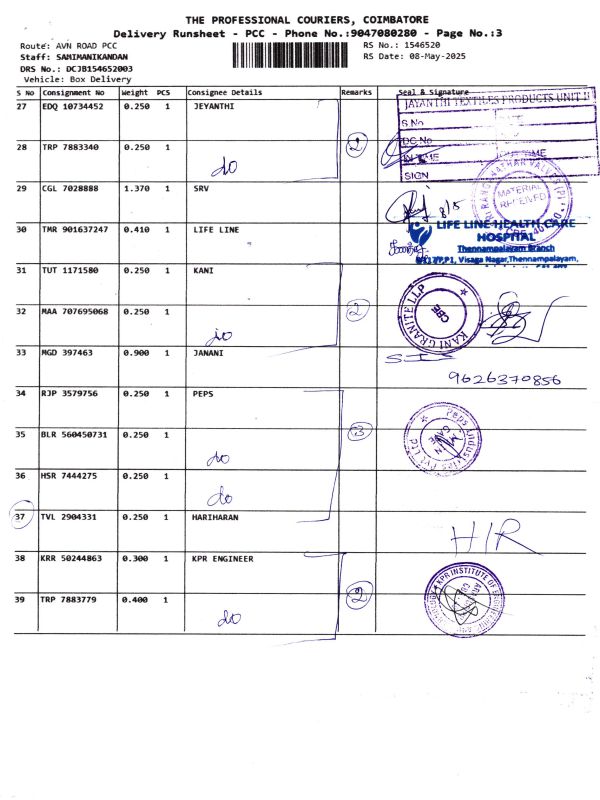 THE PROFESSIONAL COURIERS, COIMBATORE
Delivery Runsheet - PCC - Phone No.:9047080280 - Page No.:3
Route: AVN ROAD PCC RS No.: 1546520
Staff: SAMIMANIKANDAN RS Date: 08-May-2025
DRS No.: DCJB154652003
Vehicle: Box Delivery
S No Consignment No Weight PCS Consignee Details Remarks Seal & Signature
27 EDQ 10734452 0.250 1 JEYANTHI
JAYANTHI TEXTILES PRODUCTS UNIT II
S.No
DC No
IN TIME TIME
SIGN
28 TRP 7883340 0.250 1 do 2
29 CGL 7028888 1.370 1 SRV 8/5
MATERIAL RECEIVED
30 TMR 901637247 0.410 1 LIFE LINE
LIFE LINE HEALTH CARE
HOSPITAL
Thennampalayam Branch
Visaga Nagar,Thennampalayam,
31 TUT 1171580 0.250 1 KANI
32 MAA 707695068 0.250 1 do 2
KANI GRANITE LLP
CBE
33 MGD 397463 0.900 1 JANANI
9626370856
34 RJP 3579756 0.250 1 PEPS
35 BLR 560450731 0.250 1 do 3
Peps Industries Pvt Ltd
36 HSR 7444275 0.250 1 do
37 TVL 2904331 0.250 1 HARIHARAN HIR
38 KRR 50244863 0.300 1 KPR ENGINEER
KPR INSTITUTE OF ENGINEERING AND
39 TRP 7883779 0.400 1 do 2